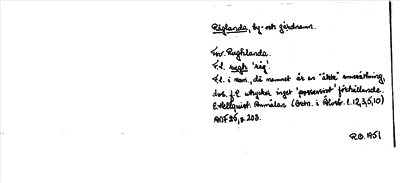 Råglanda, by- och gårdnamn.
Fsv. Rughlanda.
F.l. rugh 'råg'.
F.l. i nom., då namnet är en "äkta" smnsättning,
dvs. f.l. uttrycker inget 'possessivt' förhållande.
E. Hellquist: Anmälan (Ortn. i Älvsb. l. 12,3,5,10)
ANF 25, s. 203.
R.O. 1951